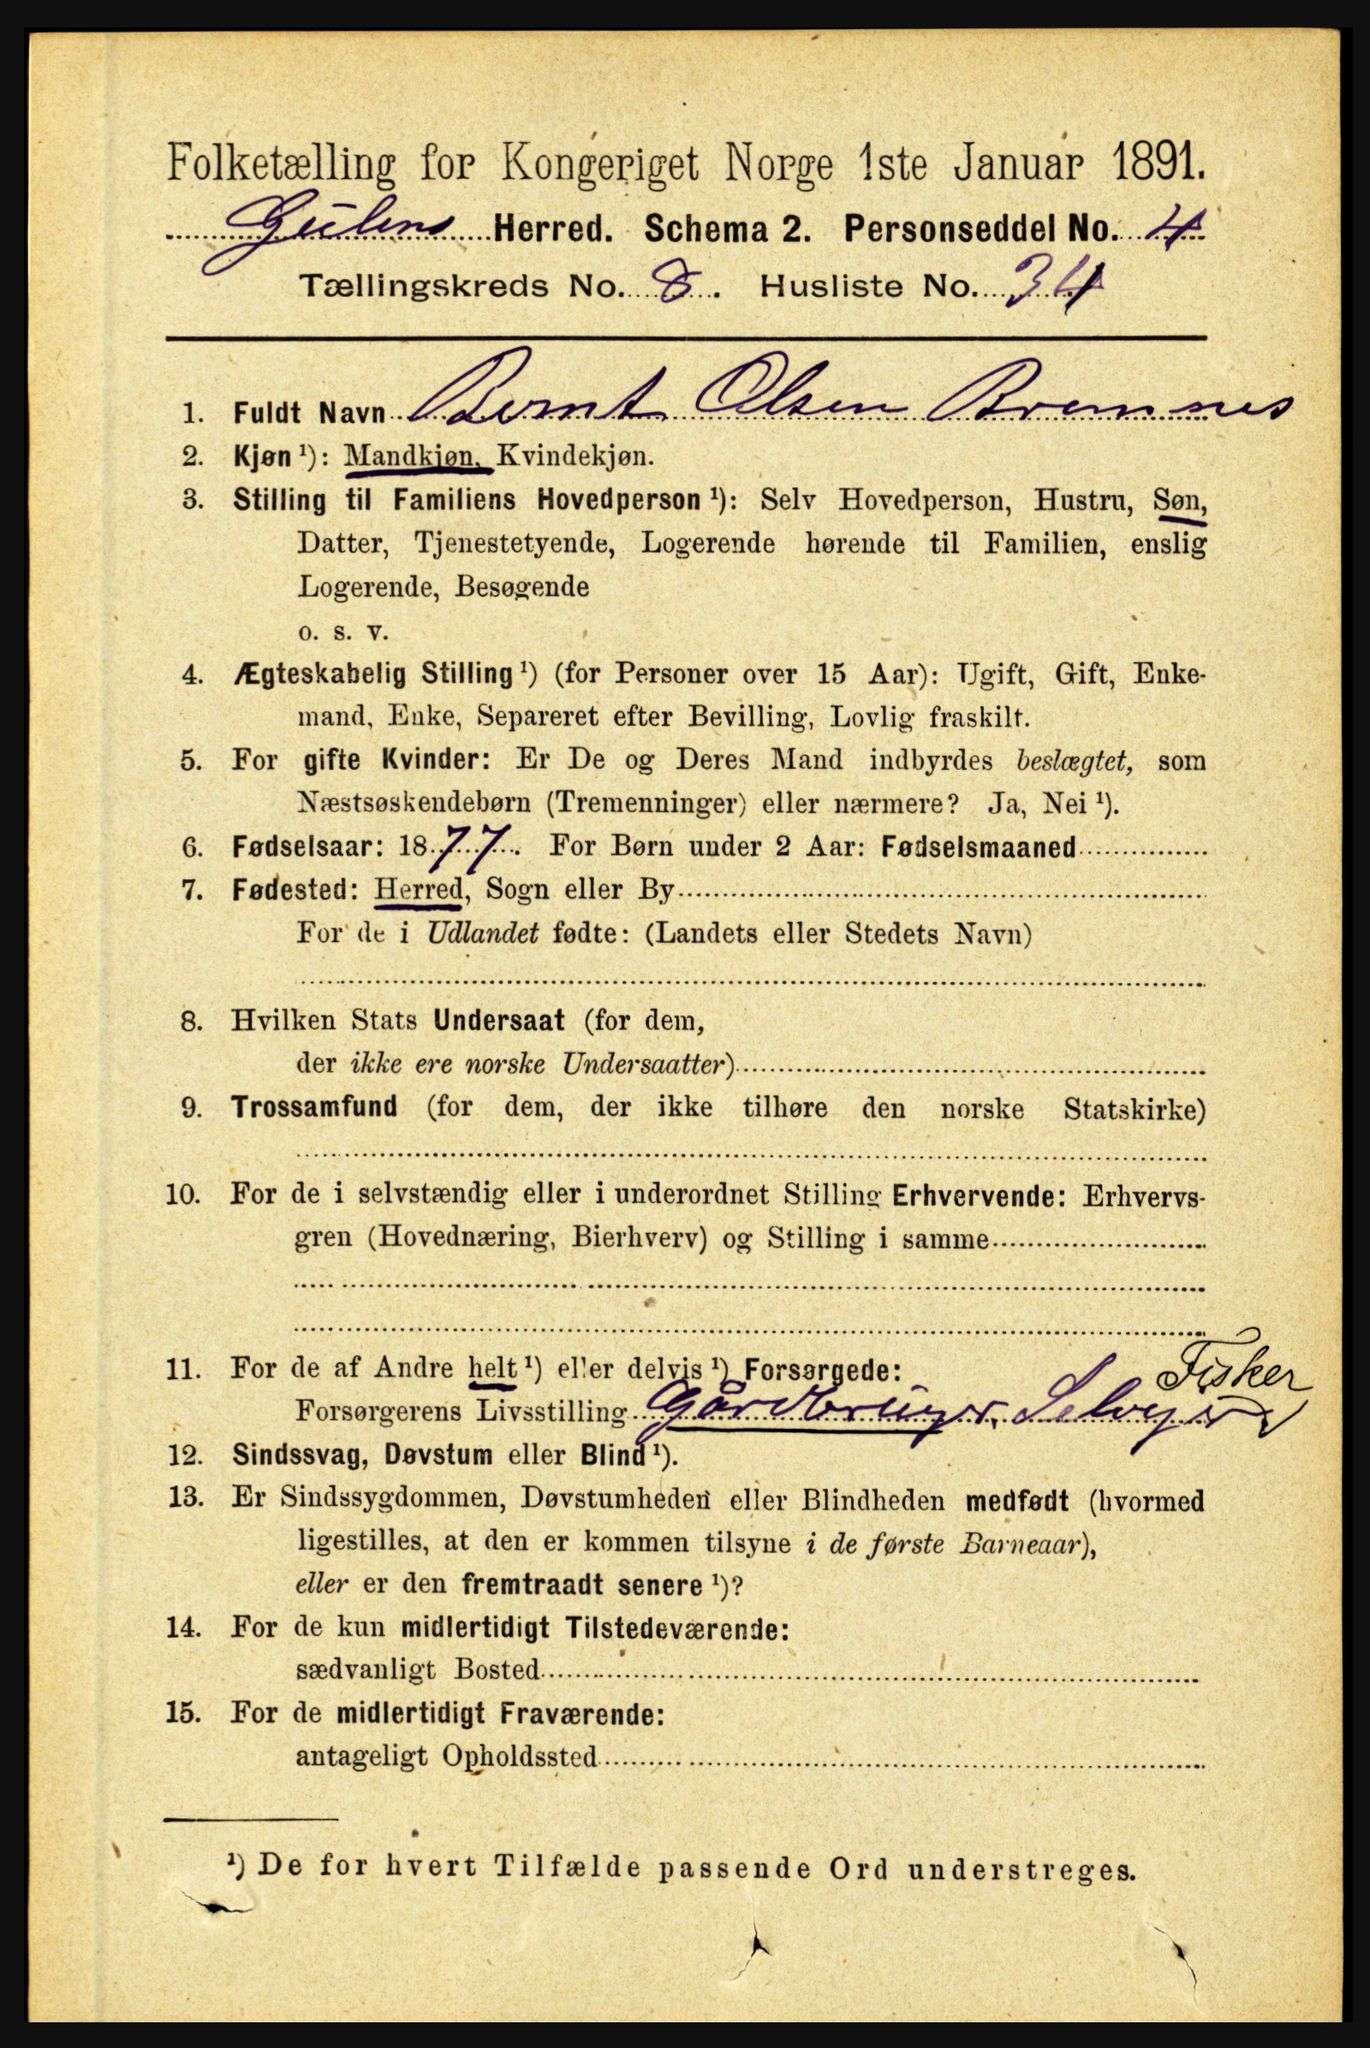 Folketælling for Kongeriget Norge 1ste Januar 1891.
Gulens Herred. Schema 2. Personseddel No. 4
Tællingskreds No. 8. Husliste No. 34
1. Fuldt Navn Bernt Olsen Bremnes
2. Kjøn ¹): Mandkjøn, Kvindekjøn.
3. Stilling til Familiens Hovedperson ¹): Selv Hovedperson, Hustru, Søn,
Datter, Tjenestetyende, Logerende hørende til Familien, enslig
Logerende, Besøgende
o. s. v.
4. Ægteskabelig Stilling ¹) (for Personer over 15 Aar): Ugift, Gift, Enke-
mand, Enke, Separeret efter Bevilling, Lovlig fraskilt.
5. For gifte Kvinder: Er De og Deres Mand indbyrdes beslægtet, som
Næstsøskendebørn (Tremenninger) eller nærmere? Ja, Nei ¹).
6. Fødselsaar: 1877. For Børn under 2 Aar: Fødselsmaaned
7. Fødested: Herred, Sogn eller By
For de i Udlandet fødte: (Landets eller Stedets Navn)
8. Hvilken Stats Undersaat (for dem,
der ikke ere norske Undersaatter)
9. Trossamfund (for dem, der ikke tilhøre den norske Statskirke)
10. For de i selvstændig eller i underordnet Stilling Erhvervende: Erhvervs-
gren (Hovednæring, Bierhverv) og Stilling i samme
11. For de af Andre helt ¹) eller delvis ¹) Forsørgede:
Fisker
Forsørgerens Livsstilling Gårdbruger, Selvejer
12. Sindssvag, Døvstum eller Blind ¹).
13. Er Sindssygdommen, Døvstumheden eller Blindheden medfødt (hvormed
ligestilles, at den er kommen tilsyne i de første Barneaar),
eller er den fremtraadt senere ¹)?
14. For de kun midlertidigt Tilstedeværende:
sædvanligt Bosted
15. For de midlertidigt Fraværende:
antageligt Opholdssted
¹) De for hvert Tilfælde passende Ord understreges.